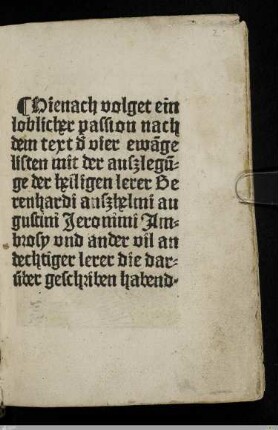 ¶Hienach volget ein
loblicher passion nach
dem text d̕ vier ewāge
listen mit der auszlegū-
ge der heiligen lerer Be
renhardi anszhelmi au
gustini Jeronimi Am-
brosy vnd ander vil an
dechtiger lerer die dar-
über geschriben habend.